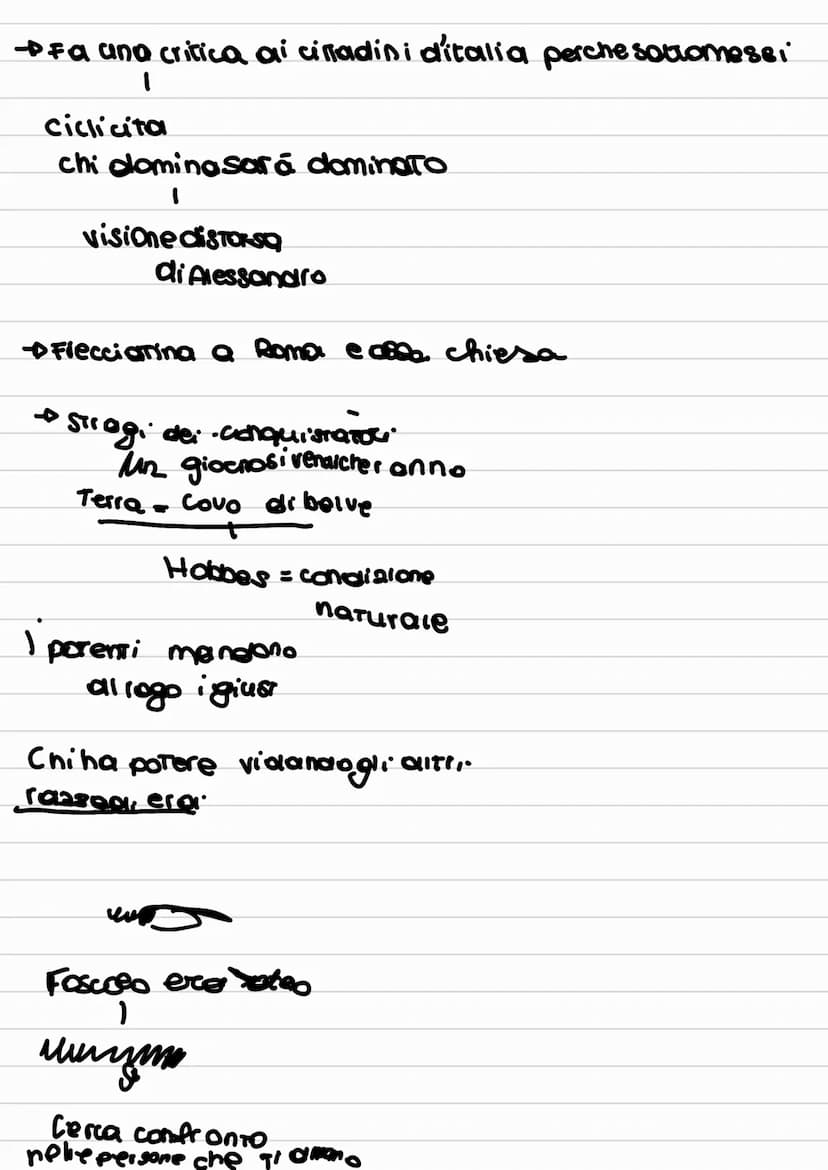 → Fa una critica ai cittadini d'italia perche sottomessi
ciclicita
chi domina sará dominato
visione distorsa
di Alessandro
→ Flecciatina a Roma e alla chiesa
→ Stragi dei conquistatori
giocno si vendicheranno
Terra = Covo di belve
Hobbes = condizione
naturale
i potenti mandano
al rogo i giust
Chi ha potere violando gli altri
Foscolo era ateo
Cerca confronto
nelle persone che ti amano